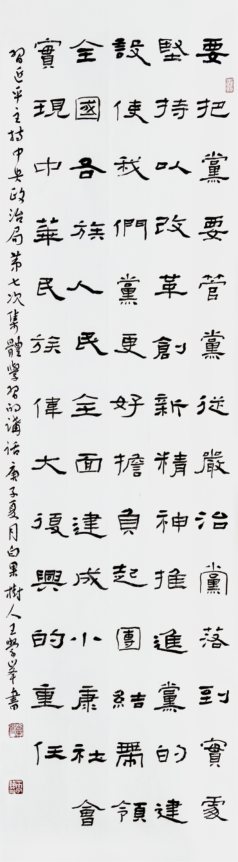 要把黨要管黨從嚴治黨落到實處
堅持以改革創新精神推進黨的建
設使我們黨更好擔負起團結帶領
全國各族人民全面建成小康社會
實現中華民族偉大復興的重任
習近平主持中央政治局第七次集體學習的講話庚子夏月白果樹人王峯書